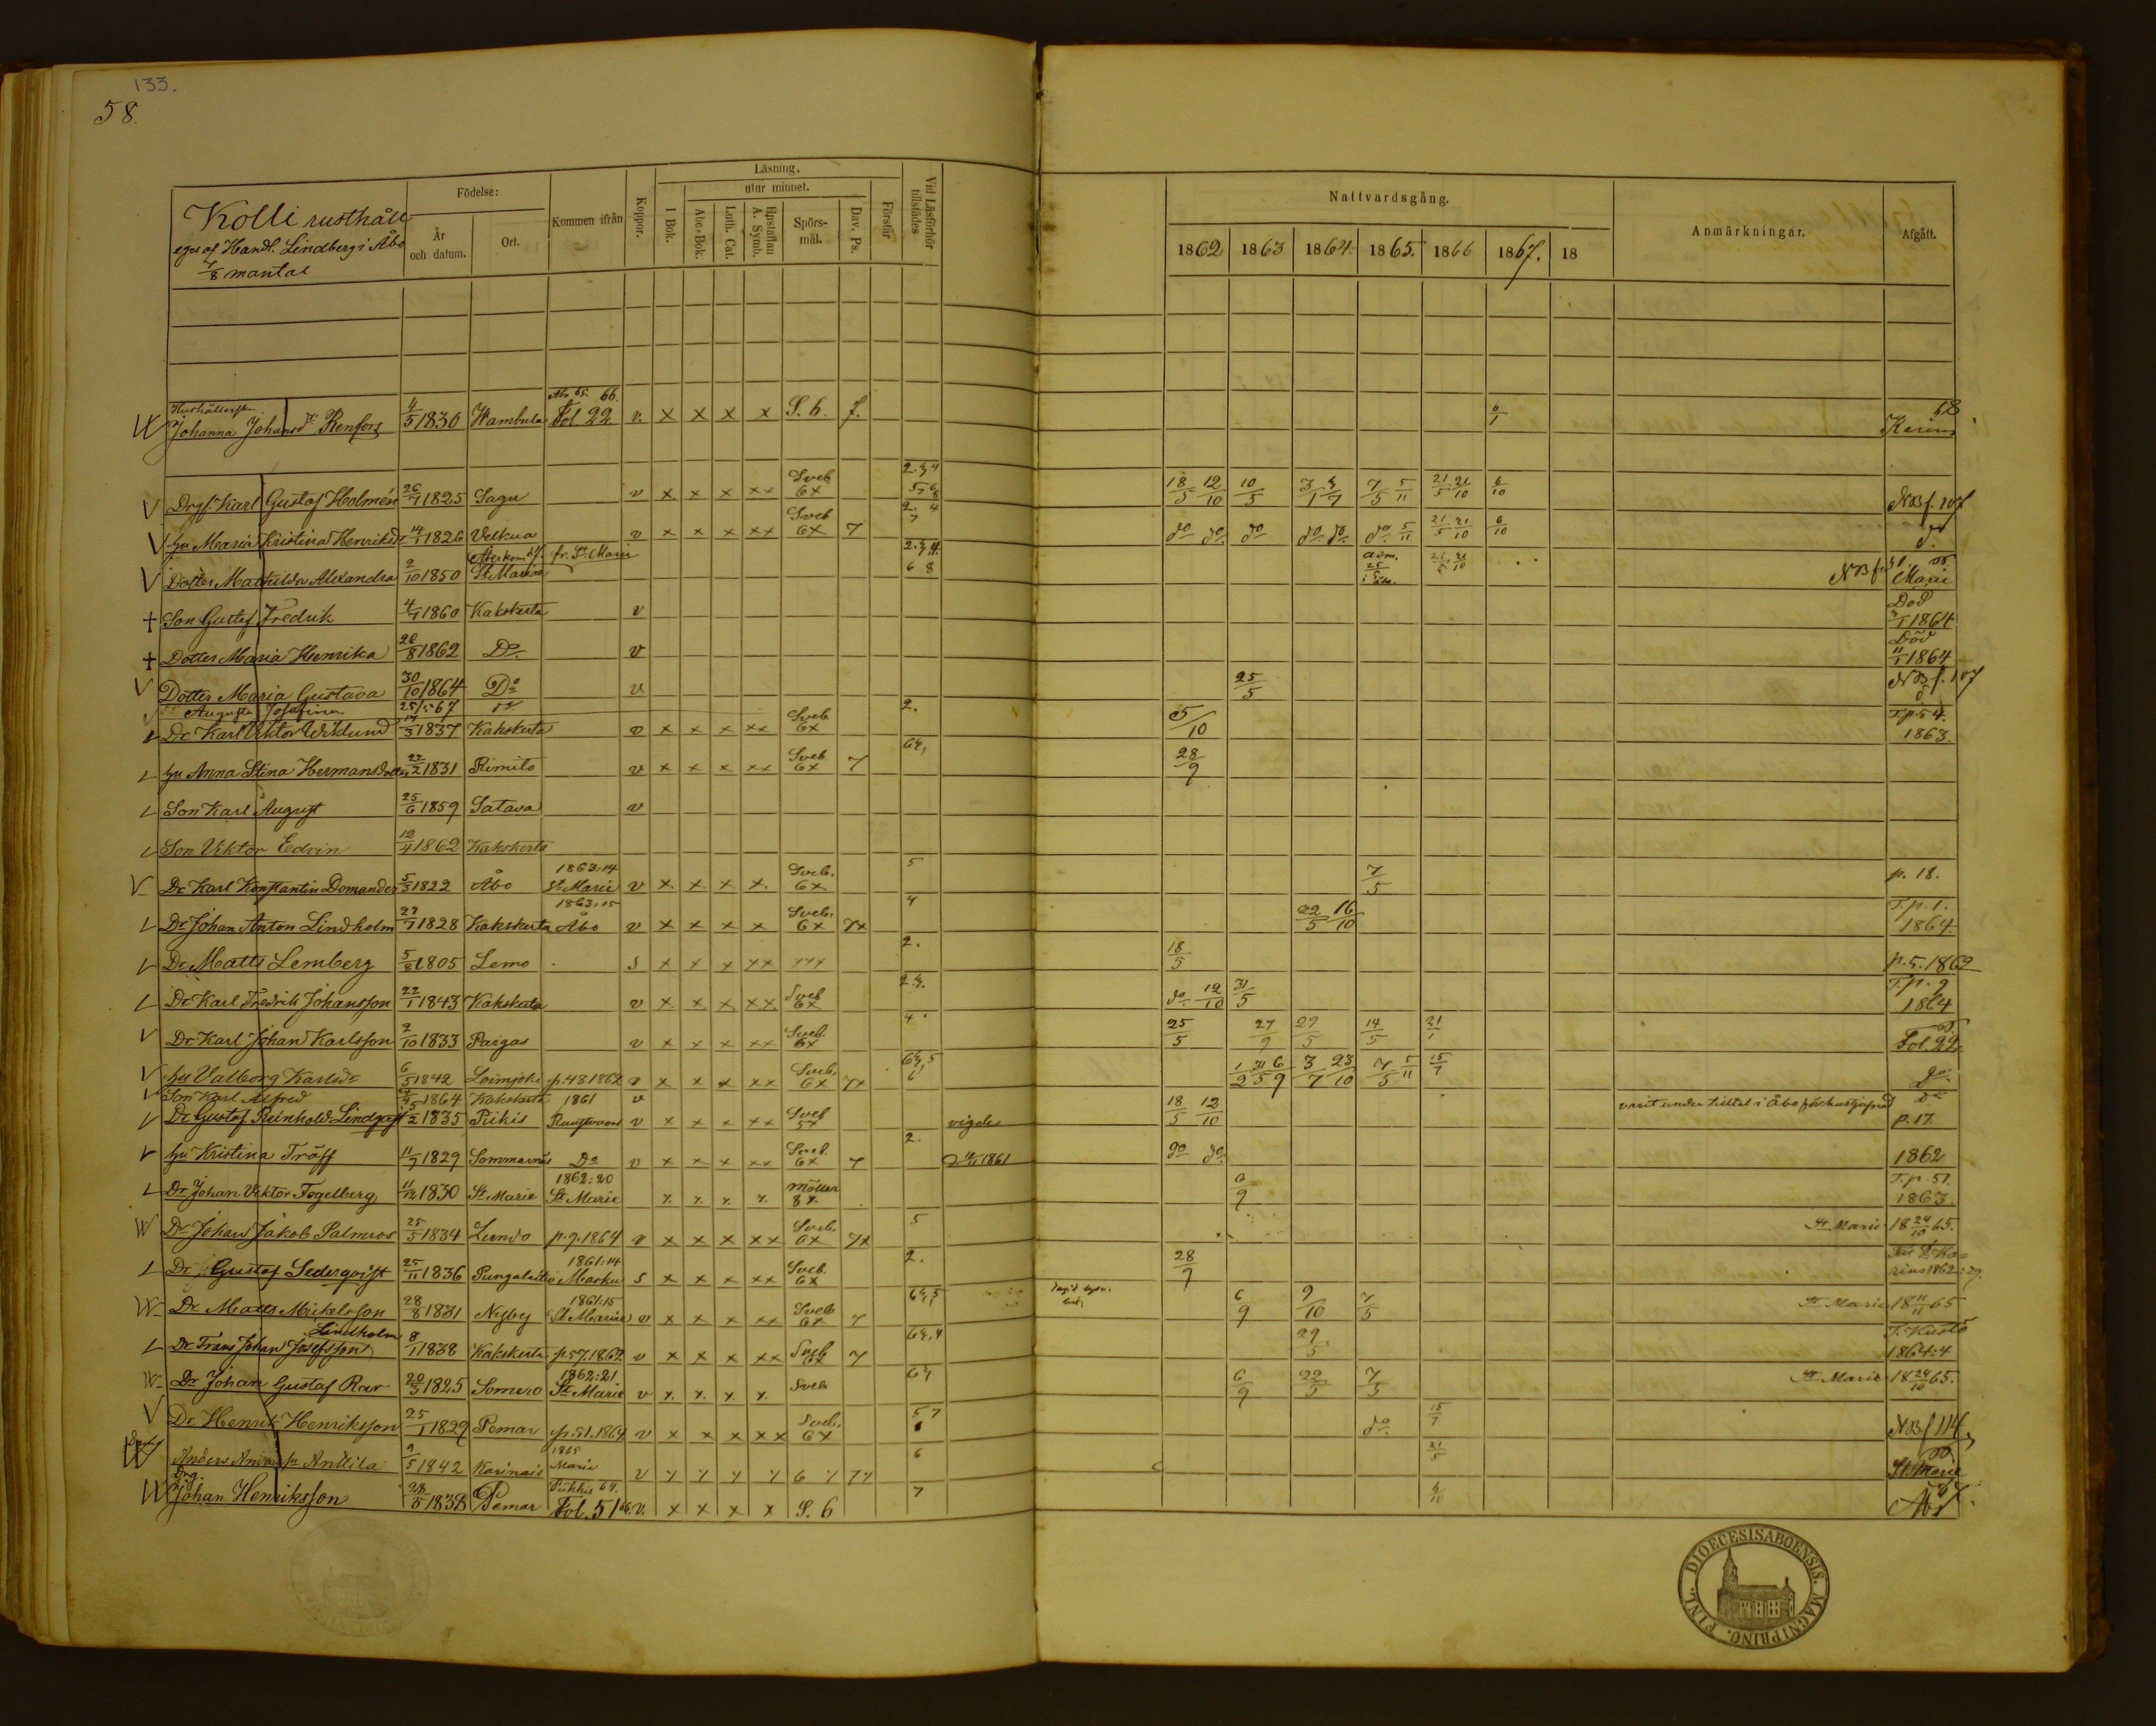 133.
58.
Kolli rusthåll
eges af Handl. Lindberg i Åbo
7/8 mantal
Födelse:
År och datum.
Ort.
Kommen ifrån
Koppor.
Läsning.
utur minnet.
I Bok.
Abc-Bok.
Luth. Cat.
Hustaflan A. Symb.
Spörs-mål.
Dav. Ps.
Förstår
Vid Läsförhör tillstädes
Nattvardsgång.
1862 1863 1864 1865. 1866 1867. 18
Anmärkningar.
Afgått.
Hushållersk. 66.
Johanna Johansdr Renfors 4/5 1830 Wambula Fol 22 v. x x x x S. 6. f. 6/1 68 Karins
Drgf. Karl Gustaf Holmén 26/7 1825 Sagu v x x x xx Sveb 6x 18/5 12/10 10/5 7/5 5/11 21/5 21/10 6/10 NB f. 107
hu Maria Kristina Henriksd 14/7 1826 Velkua v x x x xx Sveb 6x 7 do do do do do do 5/11 21/5 21/10 6/10 do
Återkom fr. St. Marie
Dotter Mathilda Alexandra 2/10 1850 St Marie 6 8 adm. 25/5 i Åbo. 21/5 21/10 Marie
+ Son Gustaf Fredrik 4/7 1860 Kakskerta v Död 1864
+ Dotter Maria Henrika 26/8 1862 Do v Död 11/1 1864
Dotter Maria Gustava 30/10 1864 Do v 25/5 NB f. 107
Augusta Josefina 25/5 67 do
Dr Karl Viktor Wiklund 1837 Kakskerta v x x x xx Sveb 6x 2. 5/10 T. p. 54. 1863.
hu Anna Stina Hermansdotter 22/2 1831 Rimito v x x x xx Sveb 6x 7 28/9
Son Karl August 25/6 1859 Satava v
Son Viktor Edvin 12/4 1862 Kakskerta
Dr Karl Konstantin Domander 5/3 1822 Åbo 1863:14 St Marie v x x x x. Sveb. 6x 5 7/5 p. 18.
Dr Johan Anton Lindholm 27/7 1828 Kakskerta 1863:15 Åbo v x x x x Sveb. 6x 7x 4 22/5 16/10 T. p. 1. 1864.
Dr Matts Lemberg 5/8 1805 Lemo s x x x xx xxx 2. 18/5 p. 5. 1862
Dr Karl Fredrik Johansson 22/1 1843 Kakskerta v x x x xx. Sveb 6x do 12/10 31/5 T. p. 9 1864
Dr Karl Johan Karlsson 2/10 1833 Pargas v x x x xx Sveb 6x 25/5 27/9 29/5 14/5 21/1 Fol. 22.
hu Valborg Karlsdr 6/5 1842 Loimjoki p. 48. 1862 v x x x xx Sveb. 6x 7x 3/7 23/10 7/5 5/11 15/7 do
Son Karl Alfred 1864 Kakskerta v do
Dr Gustaf Reinhold Lindqvist 1835 Pikis 1861 v x x x xx Sveb 5x vigde 18/5 12/10 varit under tilltal i Åbo p. 17.
hu Kristina Träff 11/7 1829 Sommarnäs Do v x x x xx Sveb. 6x 7 2. 1861 do do 1862
Dr Johan Viktor Fogelberg 11/12 1830 St Marie 1862:20 St Marie x x x x Möller 8x. 6/9 T. p. 51. 1863.
Dr Johan Jakob Palmros 25/5 1834 Lundo p. 9. 1864 v x x x xx Sveb. 6x 7x 5 St Marie 18 24/10 65.
Dr Gustaf Sederqvist 25/11 1836 Pungalaitio 1861:14 Masku s x x x xx Sveb. 6x 2. 28/9 1862:29.
Dr Matts Mickelsson 28/8 1831 Nyby 1861:15 St Marie v x x x xx Sveb 6x 7 6/9 9/10 7/5 St Marie 18 11/11 65
Lindholm
Dr Frans Johan Josefsson 8/1 1838 Kakskerta p. 57. 1862 v x x x xx Sveb 6x 7 29/5 T. Kustö 1864:4
Dr Johan Gustaf Rar 20/3 1825 Somero 1862:21. St Marie v x. x. x x. Sveb 6/9 22/5 7/5 St Marie 18 24/10 65.
Dr Henrik Henriksson 25/1 1829 Pemar p. 51. 1864 v x x x xx Sveb. 6x 5 7 do 15/7 NB f 114.
Anders Anttila 9/5 1842 Karinais 1865 Marie v 6 7 6 21/5 St. Marie
Drg.
Johan Henriksson 28/5 1838 Pemar Pikkis 64. Fol. 51 v. x x x x S. 6 7 Åbo
FINL. DIOECESIS ABOENSIS. MAGNI PRINC.